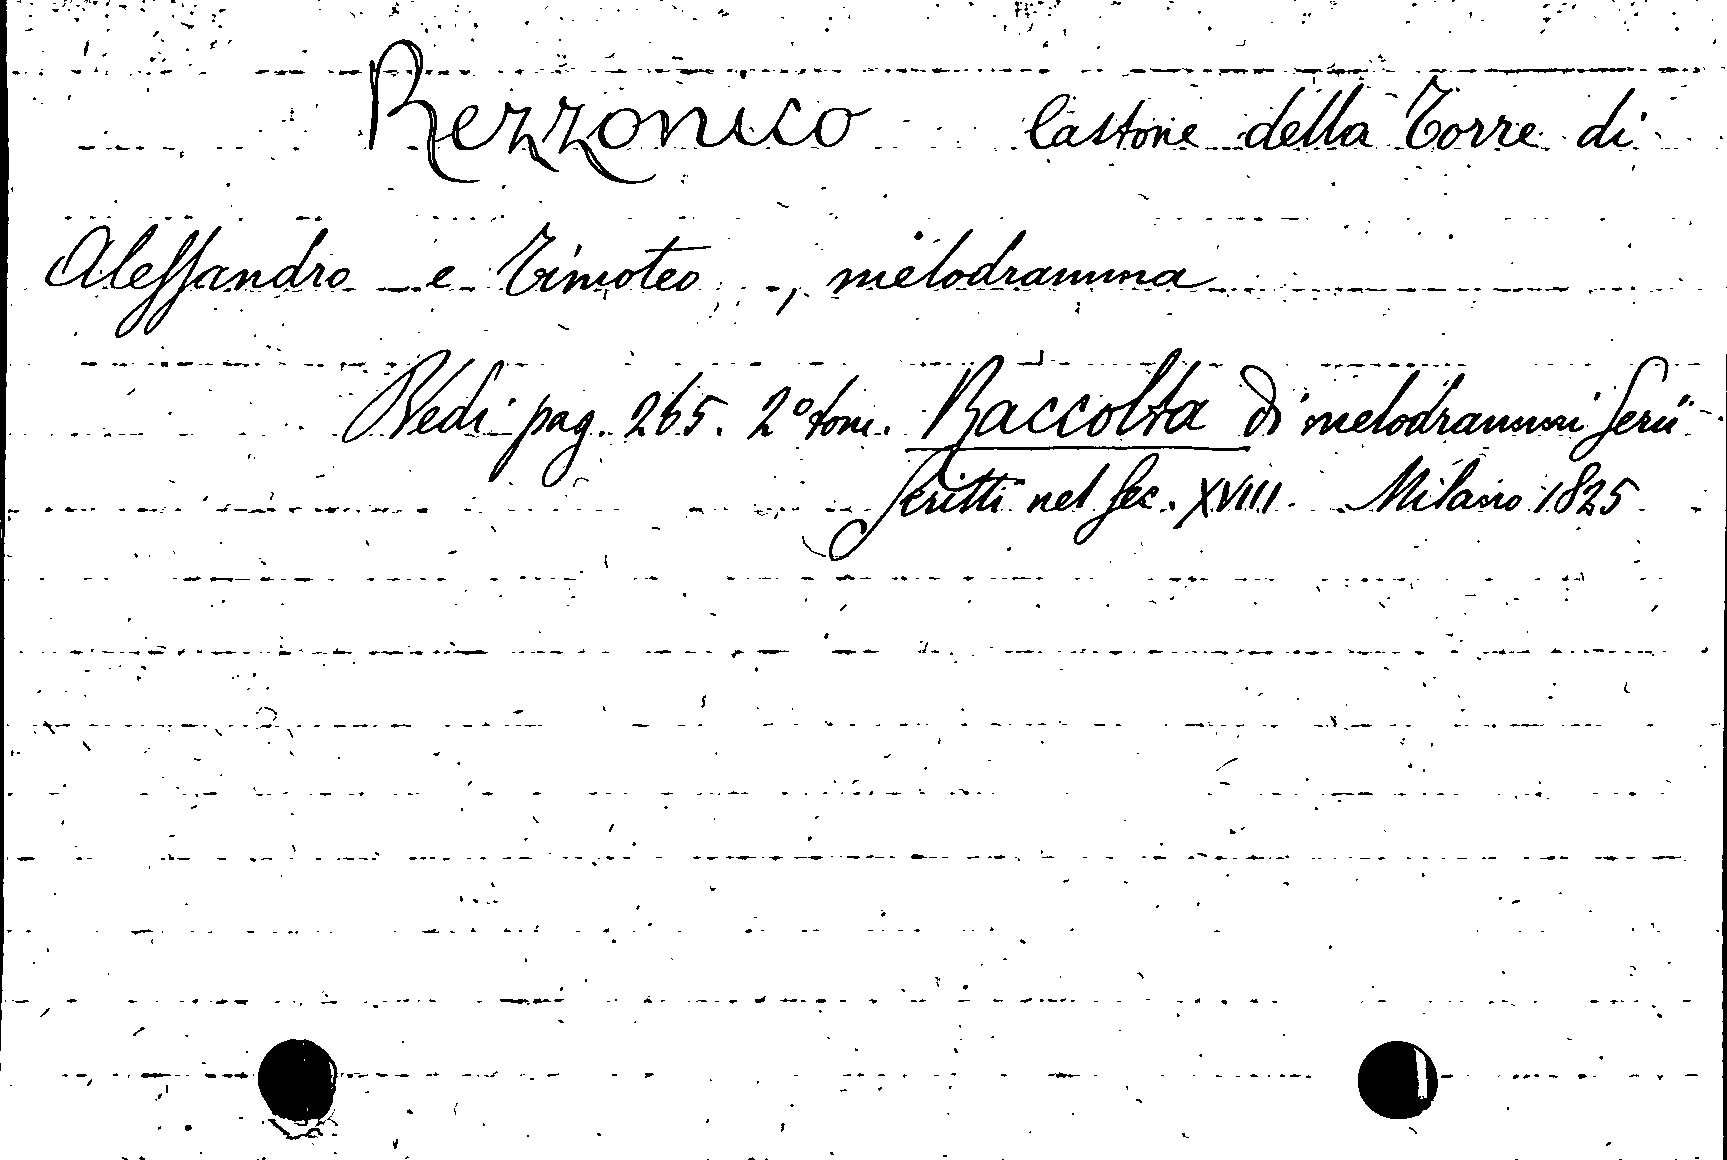 Rezzonico Castone della Torre di
Alessandro e Timoteo, melodramma
Vedi pag. 265. 2° tom. Raccolta di melodrammi serii
scritti nel sec. XVIII. Milano 1825